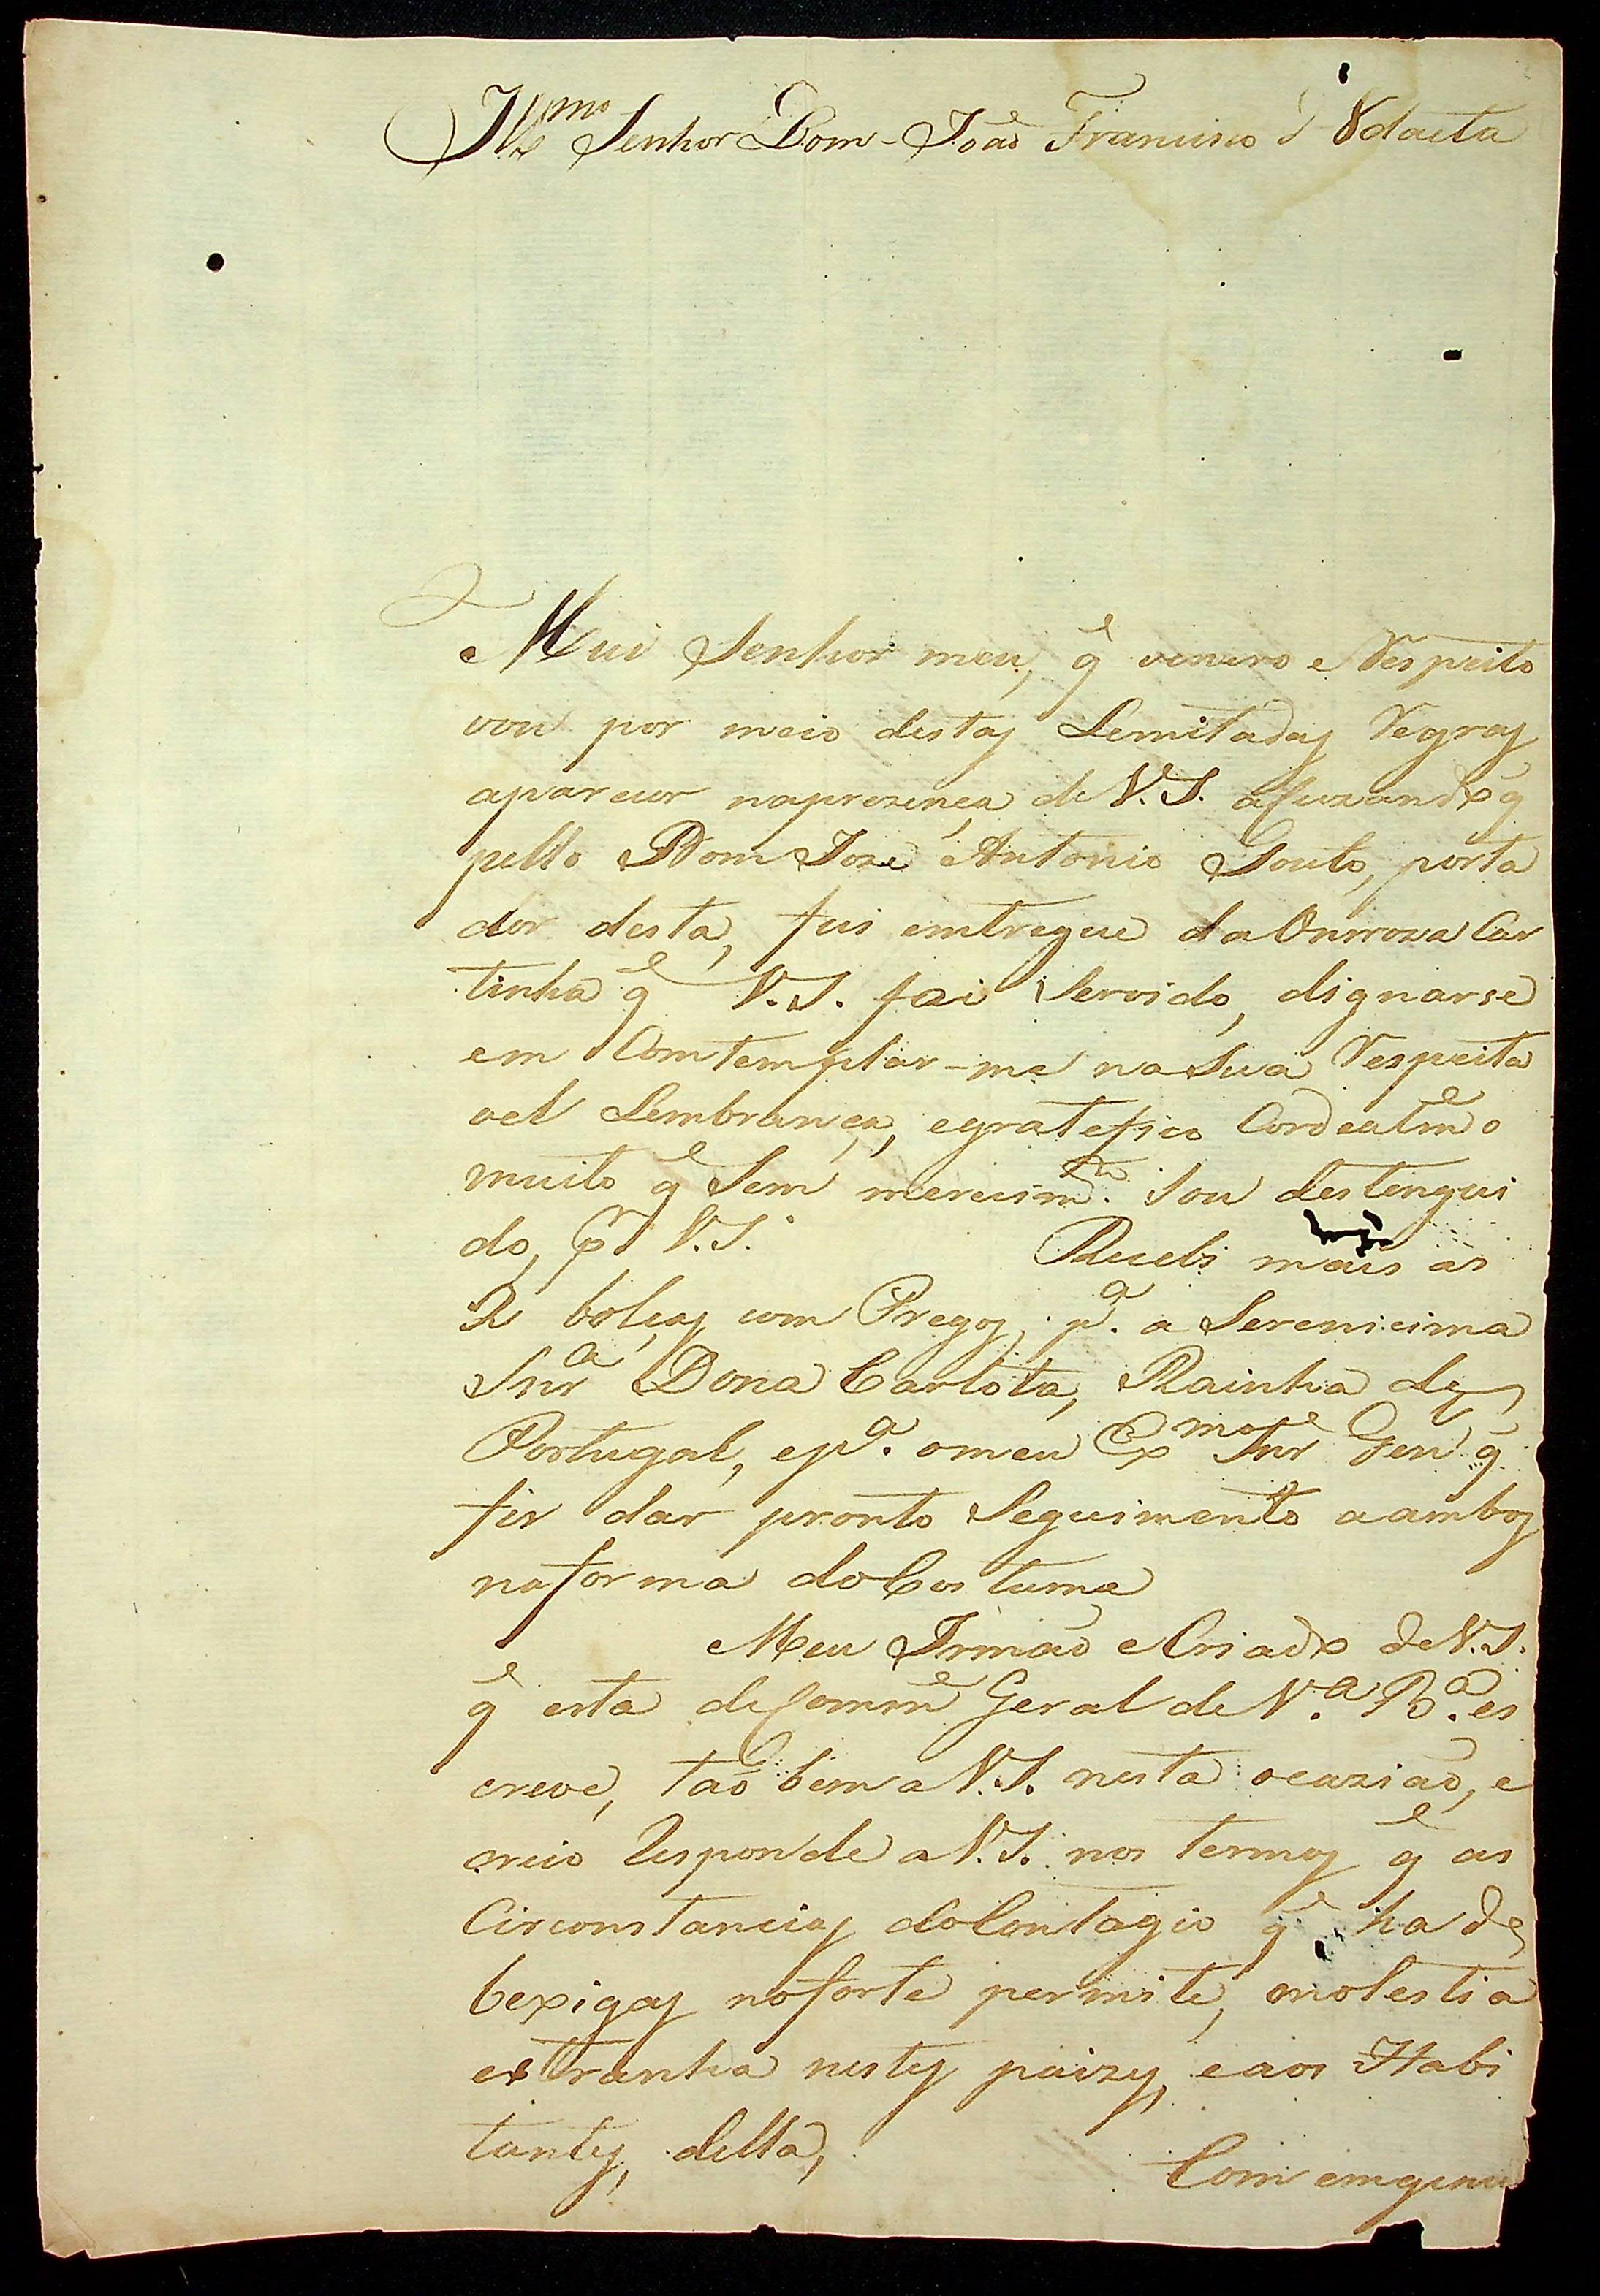 Illmo Senhor Dom João Francisco d' Udaeta
Mui Senhor meu, q̃ venero e Respeito
vou por meio destas Lemitadas Regras
aparecer naprezença de V.S. acuzando q̃
pello Dom Joze Antonio Souto, porta
dor desta, fui emtregue da Onrroza Car
tinha q̃ V.S. foi Servido, dignarse
em Comtemplar-me na Sua Respeita
vel Lembrança, egratefico Cordealme o
muito q̃ Sem merecimto. Sou destengui
do, pr V.S. Recebi mais as
2 bolças com Pregos, pa. a Serenicima
Snra Dona Carlota, Rainha de
Portugal, epa. omeu Exmo Snr Gen q̃
fis dar pronto Seguimento aambos
naforma doCostume
Meu Irmão eCriado de V.S.
q̃ esta deComme Geral de Va. Ba. es
creve, tão bem a V.S. nesta ocazião, e
creio Responde a V.S. nos termos q̃ as
Circonstancias doContagio q̃ ha de
bexigas noforte permite, molestia
estranha nestes paizes, eaos Habi
tantes, della, Com emgenu